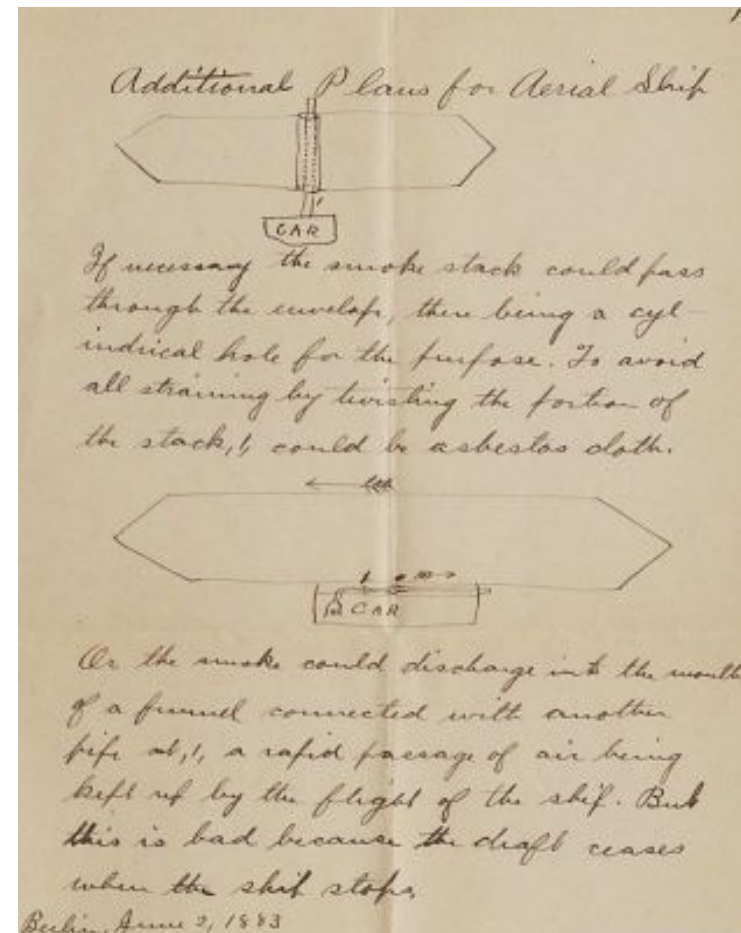 Additional Plans for Aerial Ship
1
CAR
If necessary the smoke stack could pass
through the envelope, there being a cyl-
indrical hole for the purpose. To avoid
all straining by twisting the portion of
the stack, 1, could be asbestos cloth.
1
CAR
Or the smoke could discharge into the mouth
of a funnel connected with another
pipe at, 1, a rapid passage of air being
kept up by the flight of the ship. But
this is bad because the draft ceases
when the ship stops.
Berlin, June 2, 1883